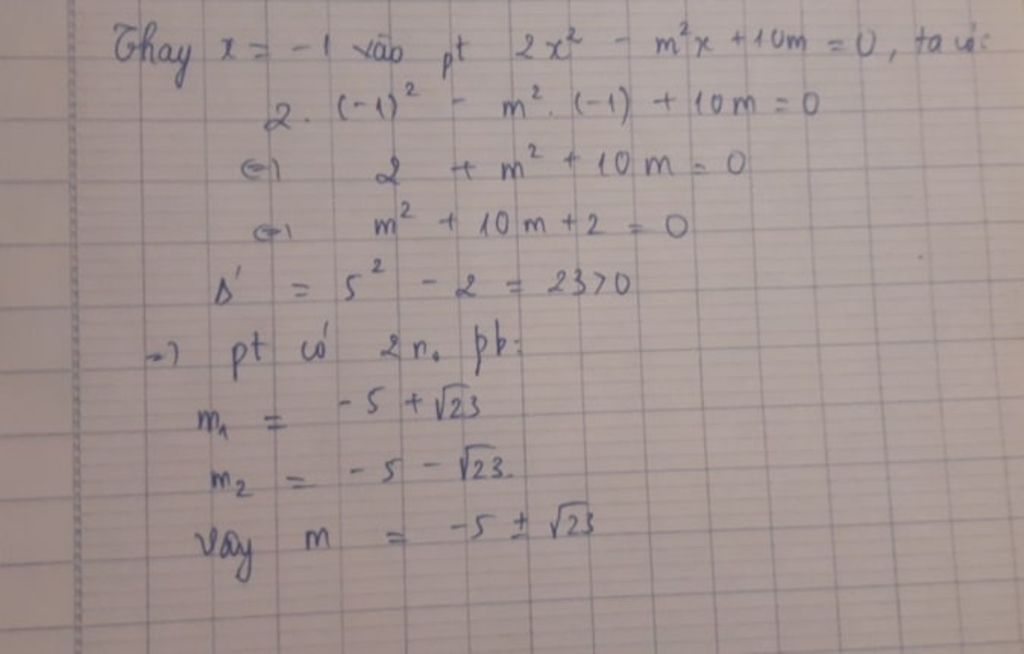 Thay x = -1 vào pt 2x² - m²x + 10m = 0, ta có:
2. (-1)² - m². (-1) + 10m = 0
⇔ 2 + m² + 10m = 0
⇔ m² + 10m + 2 = 0
Δ' = 5² - 2 = 23 > 0
=> pt có 2 n. pb:
m₁ = -5 + √23
m₂ = -5 - √23.
Vậy m = -5 ± √23